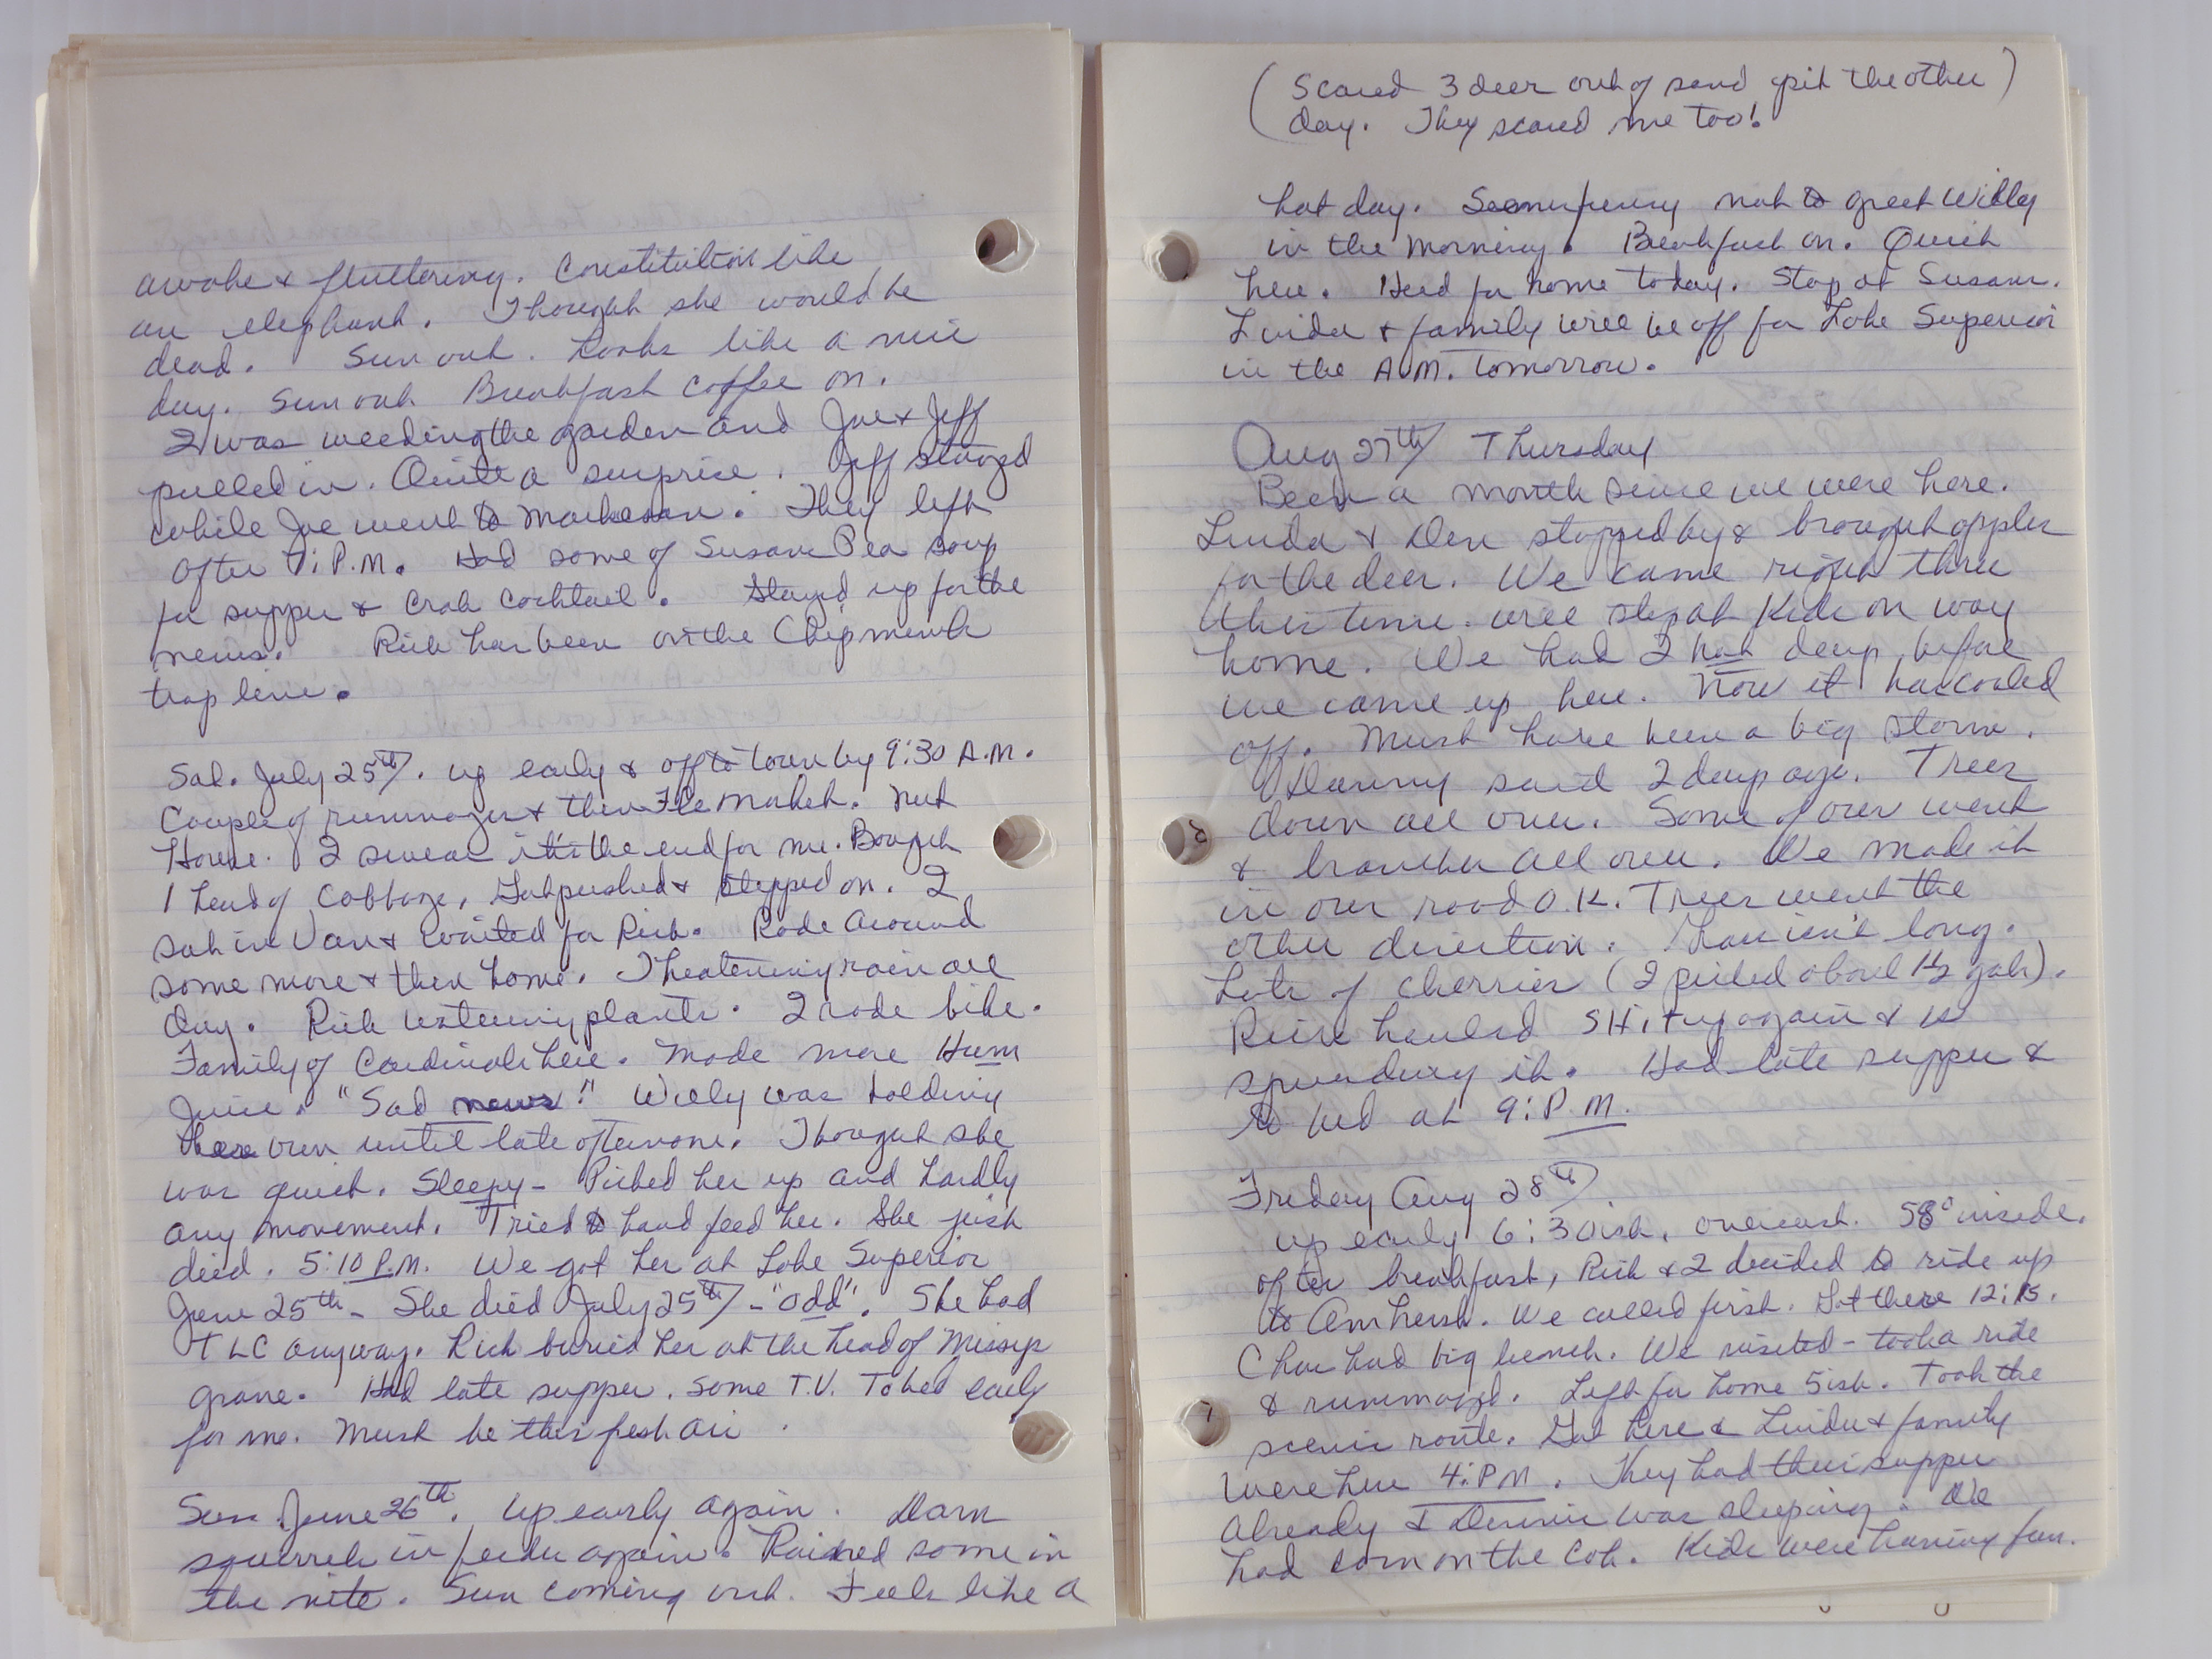 awake & fluttering. Constitution like
an elephant. Thought she would be
dead. Sun out. Looks like a nice
day. Sun out Breakfast coffee on.
I was weeding the garden and Joe & Jeff
pulled in. Quite a surprise. Jeff stayed
while Joe went to Markesan. They left
after 7: P.M. Had some of Susans Pea soup
for supper & Crab Cocktail. Stayed up for the
news. Rich has been on the Chipmunk
trap line.
Sat. July 25th. up early & off to town by 9:30 A.M.
Couple of rummages & then Fle Market. Nut
House. I swear it's the end for me. Bought
1 head of Cabbage, Got pushed & stepped on. I
sat in Van & waited for Rich. Rode around
some more & then home. Theatening rain all
day. Rich watering plants. I rode bike.
Family of Cardinals here. Made more Hum
Juice. "Sad news!" Willy was holding
her own until late afternone. Thought she
was quiet. Sleepy - Picked her up and hardly
any movement. Tried to hand feed her. She just
died. 5:10 P.M. We got her at Lake Superior
June 25th - She died July 25th - "odd". She had
TLC anyway. Rich buried her at the head of Missys
grave. Had late supper. Some T.V. To bed early
for me. Must be this fresh air.
Sun. June 26th. Up early again. Darn
squirrels in feeder again. Rained some in
the nite. Sun coming out. Feels like a
(Scared 3 deer out of sand pit the other)
day. They scared me too!
hot day. Seems funny not to greet Willy
in the morning. Breakfast on. Quiet
here. Head for home today. Stop at Susans.
Linda & family will be off for Lake Superior
in the A.M. tomorrow.
Aug 27th Thursday
Been a month since we were here.
Linda & Den stopped by & brought apples
for the deer. We came right thru
this time. Will stop at Kids on way
home. We had 2 hot days before
we came up here. Now it has cooled
off. Must have been a big storm.
Danny said 2 days ago. Trees
down all over. Some of ours went
& branches all over. We made it
in our road O.K. Trees went the
other direction. Grass isn't long.
Lots of cherries (I picked about 1½ gals).
Rich hauled SHit up again & is
spreading it. Had late supper &
to bed at 9: P.M.
Friday Aug 28th
up early 6:30ish. overcast. 58° inside.
after breakfast, Rich & I decided to ride up
to Amherst. We called first. Got there 12:15.
Char had big lunch. We visited - took a ride
& rummaged. Left for home 5ish. Took the
scenic route. Got here & Linda & family
were here 4: P.M. They had their supper
already & Dennis was sleeping. We
had corn on the cob. Kids were having fun.